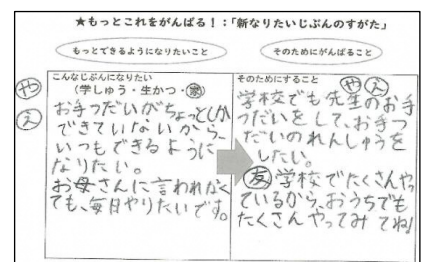 ★もっとこれをがんばる!:「新なりたいじぶんのすがた」
もっとできるようになりたいこと
そのためにがんばること
や
え
こんなじぶんになりたい
(学しゅう・生かつ・家)
お手つだいがちょっとしか
できていないから
いつもできるように
なりたい。
お母さんに言われなく
ても、毎日やりたいです。
そのためにすること
や え
学校でも先生のお手
つだいをして、お手つ
だいのれんしゅうを
したい。
友 学校でたくさんやっ
ているから、おうちでも
たくさんやってみてね!